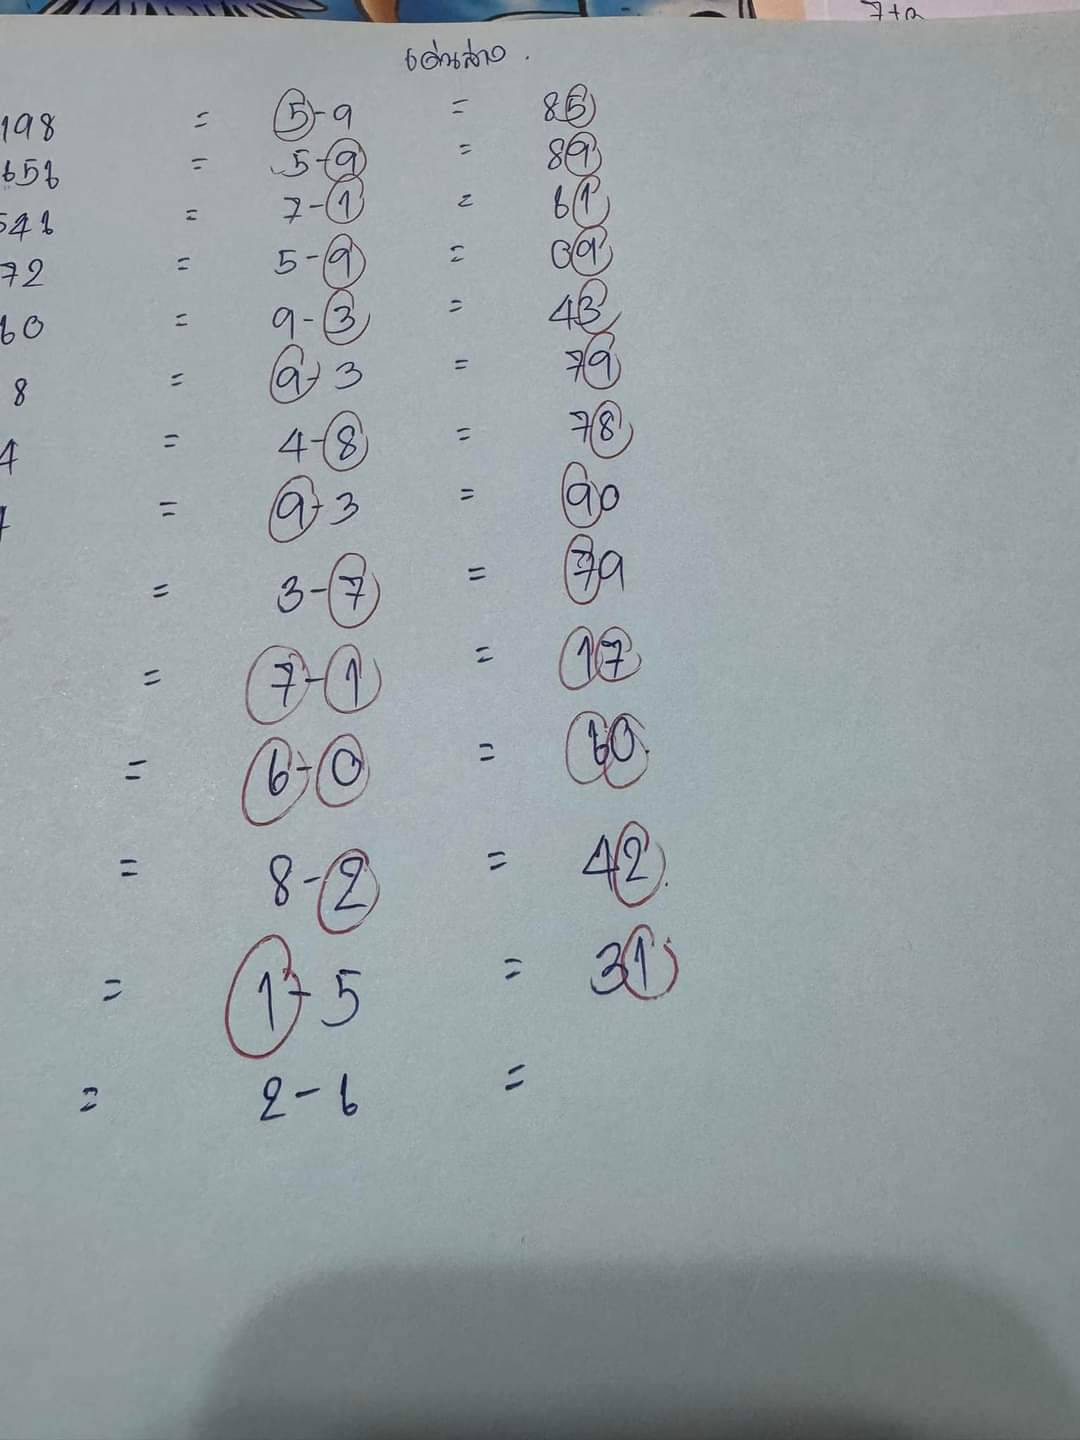 7+9
เด่นล่าง.
198 = 5-9 = 85
656 = 5-9 = 89
546 = 7-1 = 61
72 = 5-9 = 09
60 = 9-3 = 43
8 = 9-3 = 79
4 = 4-8 = 78
= 9-3 = 90
= 3-7 = 79
= 7-1 = 17
= 6-0 = 60
= 8-2 = 42
= 1-5 = 31
= 2-6 =